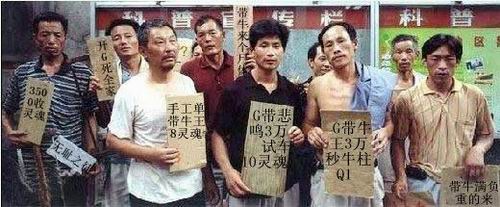 科普宣传栏
科普
开G死全家
带牛来个
350
0收
灵魂
手工单
带牛王
8灵魂
G带悲
鸣3万
试车
10灵魂
G带牛
王3万
秒牛柱
Q1
带牛满负
重的来